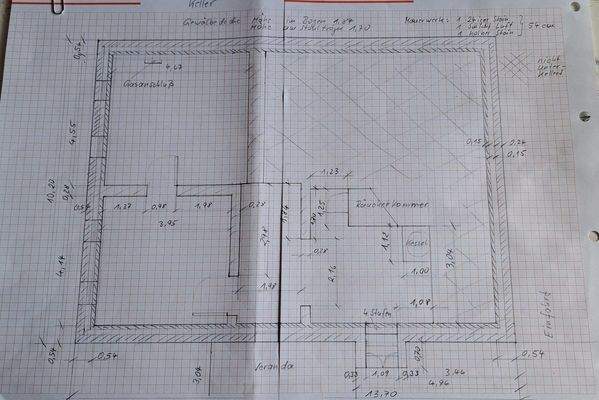 Keller
Gewölbedecke Höhe im Bogen 1,84
Höhe am Stahlträger 1,70
Mauerwerk: 1 24iger Stein
1 hohler Stein
54 cm
nicht
unter-
kellert
0,54
4,67
Gasanschluß
4,55
10,20
0,28
4,14
0,54
0,54
1,27
0,98
1,98
3,95
0,28
2,98
1,84
1,98
1,23
1,25
Räucherkammer
1,12
Kessel
1,00
3,04
1,08
0,28
2,16
4 Stufen
0,15
0,24
0,15
Einfahrt
0,54
3,04
Veranda
0,33
1,09
0,33
0,70
3,46
4,96
13,70
0,54